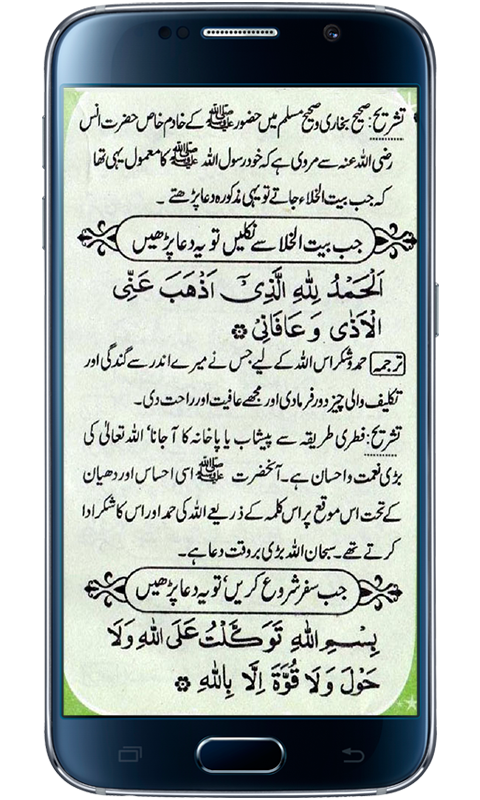 تشریح: صحیح بخاری و صحیح مسلم میں حضور ﷺ کے خادم خاص حضرت انس
رضی اللہ عنہ سے مروی ہے کہ خود رسول اللہ ﷺ کا معمول یہی تھا
کہ جب بیت الخلاء جاتے تو یہی مذکورہ دعا پڑھتے ۔
جب بیت الخلا سے نکلیں تو یہ دعا پڑھیں
اَلْحَمْدُ لِلّٰهِ الَّذِیْٓ اَذْهَبَ عَنِّی
الْاَذٰی وَ عَافَانِیْ
ترجمہ حمد و شکر اس اللہ کے لیے جس نے میرے اندر سے گندگی اور
تکلیف والی چیز دور فرما دی اور مجھے عافیت اور راحت دی۔
تشریح: فطری طریقہ سے پیشاب یا پاخانہ کا آ جانا، اللہ تعالیٰ کی
بڑی نعمت و احسان ہے۔ آنحضرت ﷺ اسی احساس اور دھیان
کے تحت اس موقع پر اس کلمہ کے ذریعے اللہ کی حمد اور اس کا شکر ادا
کرتے تھے۔ سبحان اللہ بڑی بروقت دعا ہے۔
جب سفر شروع کریں، تو یہ دعا پڑھیں
بِسْمِ اللهِ تَوَكَّلْتُ عَلَى اللهِ وَلَا
حَوْلَ وَلَا قُوَّةَ اِلَّا بِاللهِ